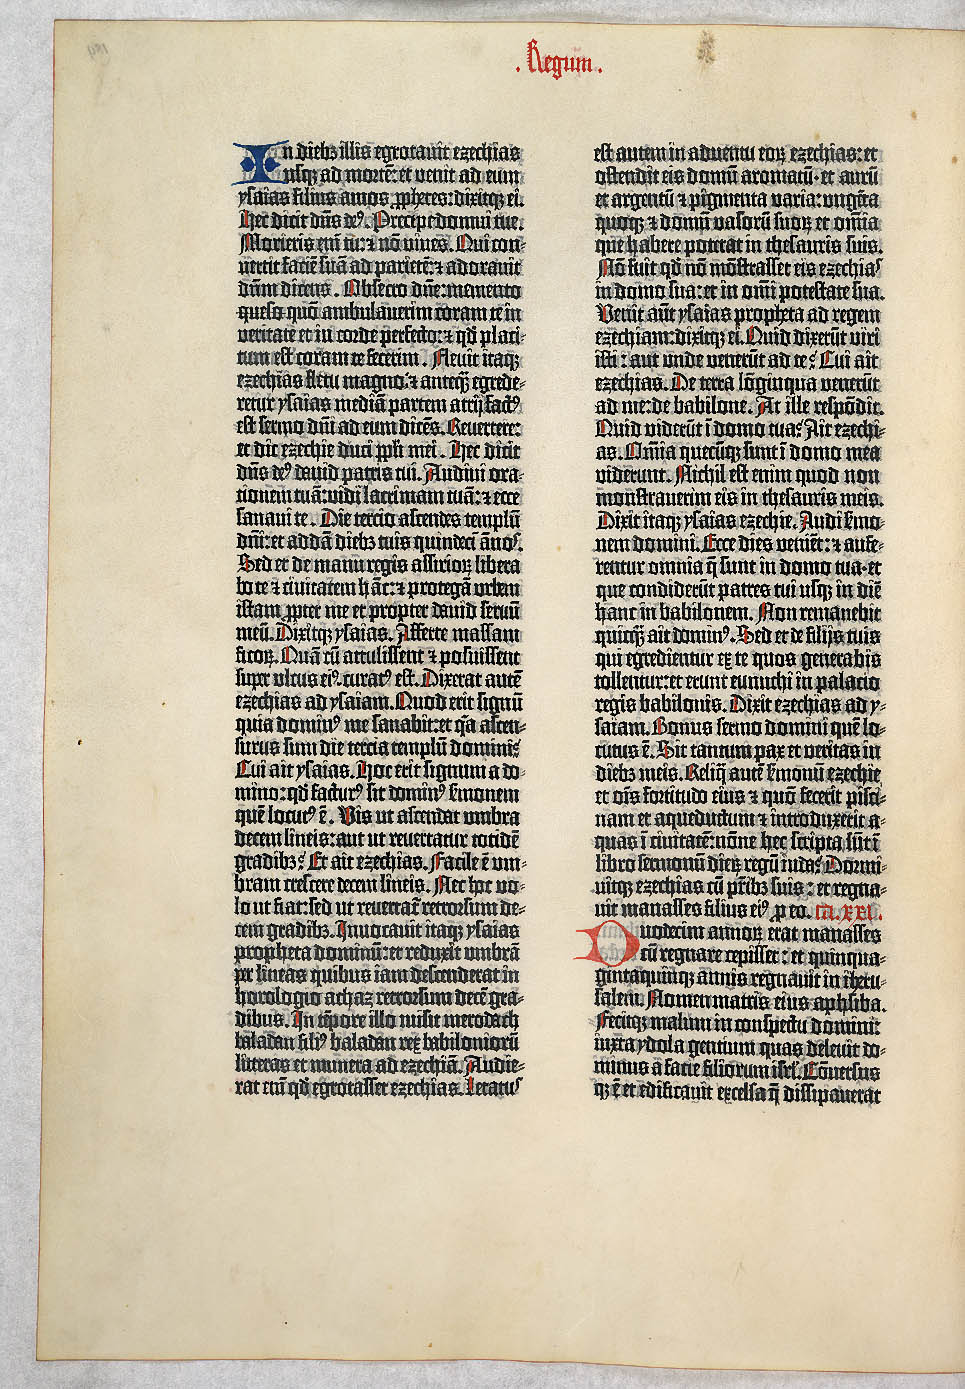 . Regum .
In diebꝫ illis egrotavit ezechias
usqꝫ ad mortē: et venit ad eum
ysaias filius amos ꝓphetes: dixitqꝫ ei.
Hec dicit dn̄s deꝰ. Precipe domui tue.
Morieris em̄ tu: ⁊ nō vives. Qui con-
vertit faciē suā ad parietē: ⁊ adoravit
dn̄m dicens. Obsecro dn̄e: memento
queso quō ambulaverim coram te in
veritate et in corde perfecto: ⁊ qd̄ placi-
tum est coram te fecerim. Flevit itaqꝫ
ezechias fletu magno: ⁊ anteqꝫ egrede-
retur ysaias mediā partem atrij factꝰ
est sermo dn̄i ad eum dicēs. Revertere:
et dic ezechie duci ppl̄i mei. Hec dicit
dn̄s deꝰ david patris tui. Audivi ora-
tionem tuā: vidi lacrimam tuā: ⁊ ecce
sanavi te. Die tercio ascendes templū
dn̄i: et addā diebꝫ tuis quindecī ānoꝰ.
Sed et de manu regis assirioꝝ libera
bo te ⁊ civitatem hāc: ⁊ protegā urbem
istam ꝓpter me et propter david servū
meū. Dixitqꝫ ysaias. Afferte massam
ficoꝝ. Quā cū attulissent ⁊ posuissent
super ulcus eiꝰ. curatꝰ est. Dixerat autē
ezechias ad ysaiam. Quod erit signū
quia dominꝰ me sanabit: et qa ascen-
surus sum die tercia templū domini?
Cui ait ysaias. Hoc erit signum a do-
mino: qd̄ facturꝰ sit dominꝰ ẜmonem
quē locutꝰ ē. Vis ut ascendat umbra
decem lineis: aut ut revertatur totidē
gradibꝫ? Et ait ezechias. Facile ē um-
bram crescere decem lineis. Nec hoc vo-
lo ut fiat: sed ut revertat̄ retrorsum de-
cem gradibꝫ. Invocavit itaqꝫ ysaias
propheta dominū: et reduxit umbrā
per lineas quibus iam descenderat in
horologio achaz retrorsum decē gra-
dibus. In tēpore illo misit merodach
baladan filiꝰ baladan rex babilonioꝛū
litteras et munera ad ezechiā. Audie-
rat enī qd̄ egrotasset ezechias. Letatuꝰ
est autem in adventu eoꝝ ezechias: et
ostendit eis domū aromatū. et aurū
et argentū ⁊ pigmenta varia: ungēta
quoqꝫ ⁊ domū vasorū suoꝝ et om̄ia
que habere poterat in thesauris suis.
Nō fuit qd̄ nō mōstrasset eis ezechiaꝰ
in domo sua: et in om̄i potestate sua.
Venit aūt ysaias propheta ad regem
ezechiam: dixitqꝫ ei. Quid dixerūt viri
isti: aut unde venerūt ad te? Cui ait
ezechias. De terra lōginqua venerūt
ad me: de babilone. At ille respōdit.
Quid viderūt ī domo tua? Ait ezechi-
as. Om̄ia quecūqꝫ sunt ī domo mea
viderunt. Nichil est enim quod non
monstraverim eis in thesauris meis.
Dixit itaqꝫ ysaias ezechie. Audi ẜmo-
nem domini. Ecce dies veniēt: ⁊ aufe-
rentur omnia q̄ sunt in domo tua. et
que condiderūt patres tui usqꝫ in diē
hanc in babilonem. Non remanebit
quicqꝫ ait dominꝰ. Sed et de filijs tuis
qui egredientur ex te quos generabis
tollentur: et erunt eunuchi in palacio
regis babilonis. Dixit ezechias ad y-
saiam. Bonus sermo domini quē lo-
cutus ē. Sit tantum pax et veritas in
diebꝫ meis. Reliq̄ autē ẜmonū ezechie
et oīs fortitudo eius ⁊ quō fecerit pisci-
nam et aqueductum ⁊ introduxerit a-
quas ī civitatē: nōne hec scripta sūt ī
libro sermonū dieꝝ regū iuda? Dormi-
vitqꝫ ezechias cū pr̄ibꝫ suis: et regna-
vit manasses filius eiꝰ ꝓ eo. ca. XXI.
Duodecim annoꝝ erat manasses
cū regnare cepisset: et quinqua-
gintaquinqꝫ annis regnavit in iheru-
salem. Nomen matris eius aphsiba.
Fecitqꝫ malum in conspectu domini:
iuxta ydola gentium quas delevit do-
minus a facie filiorum isrl̄. Cōversus
qꝫ ē et edificavit excelsa q̄ dissipaverat